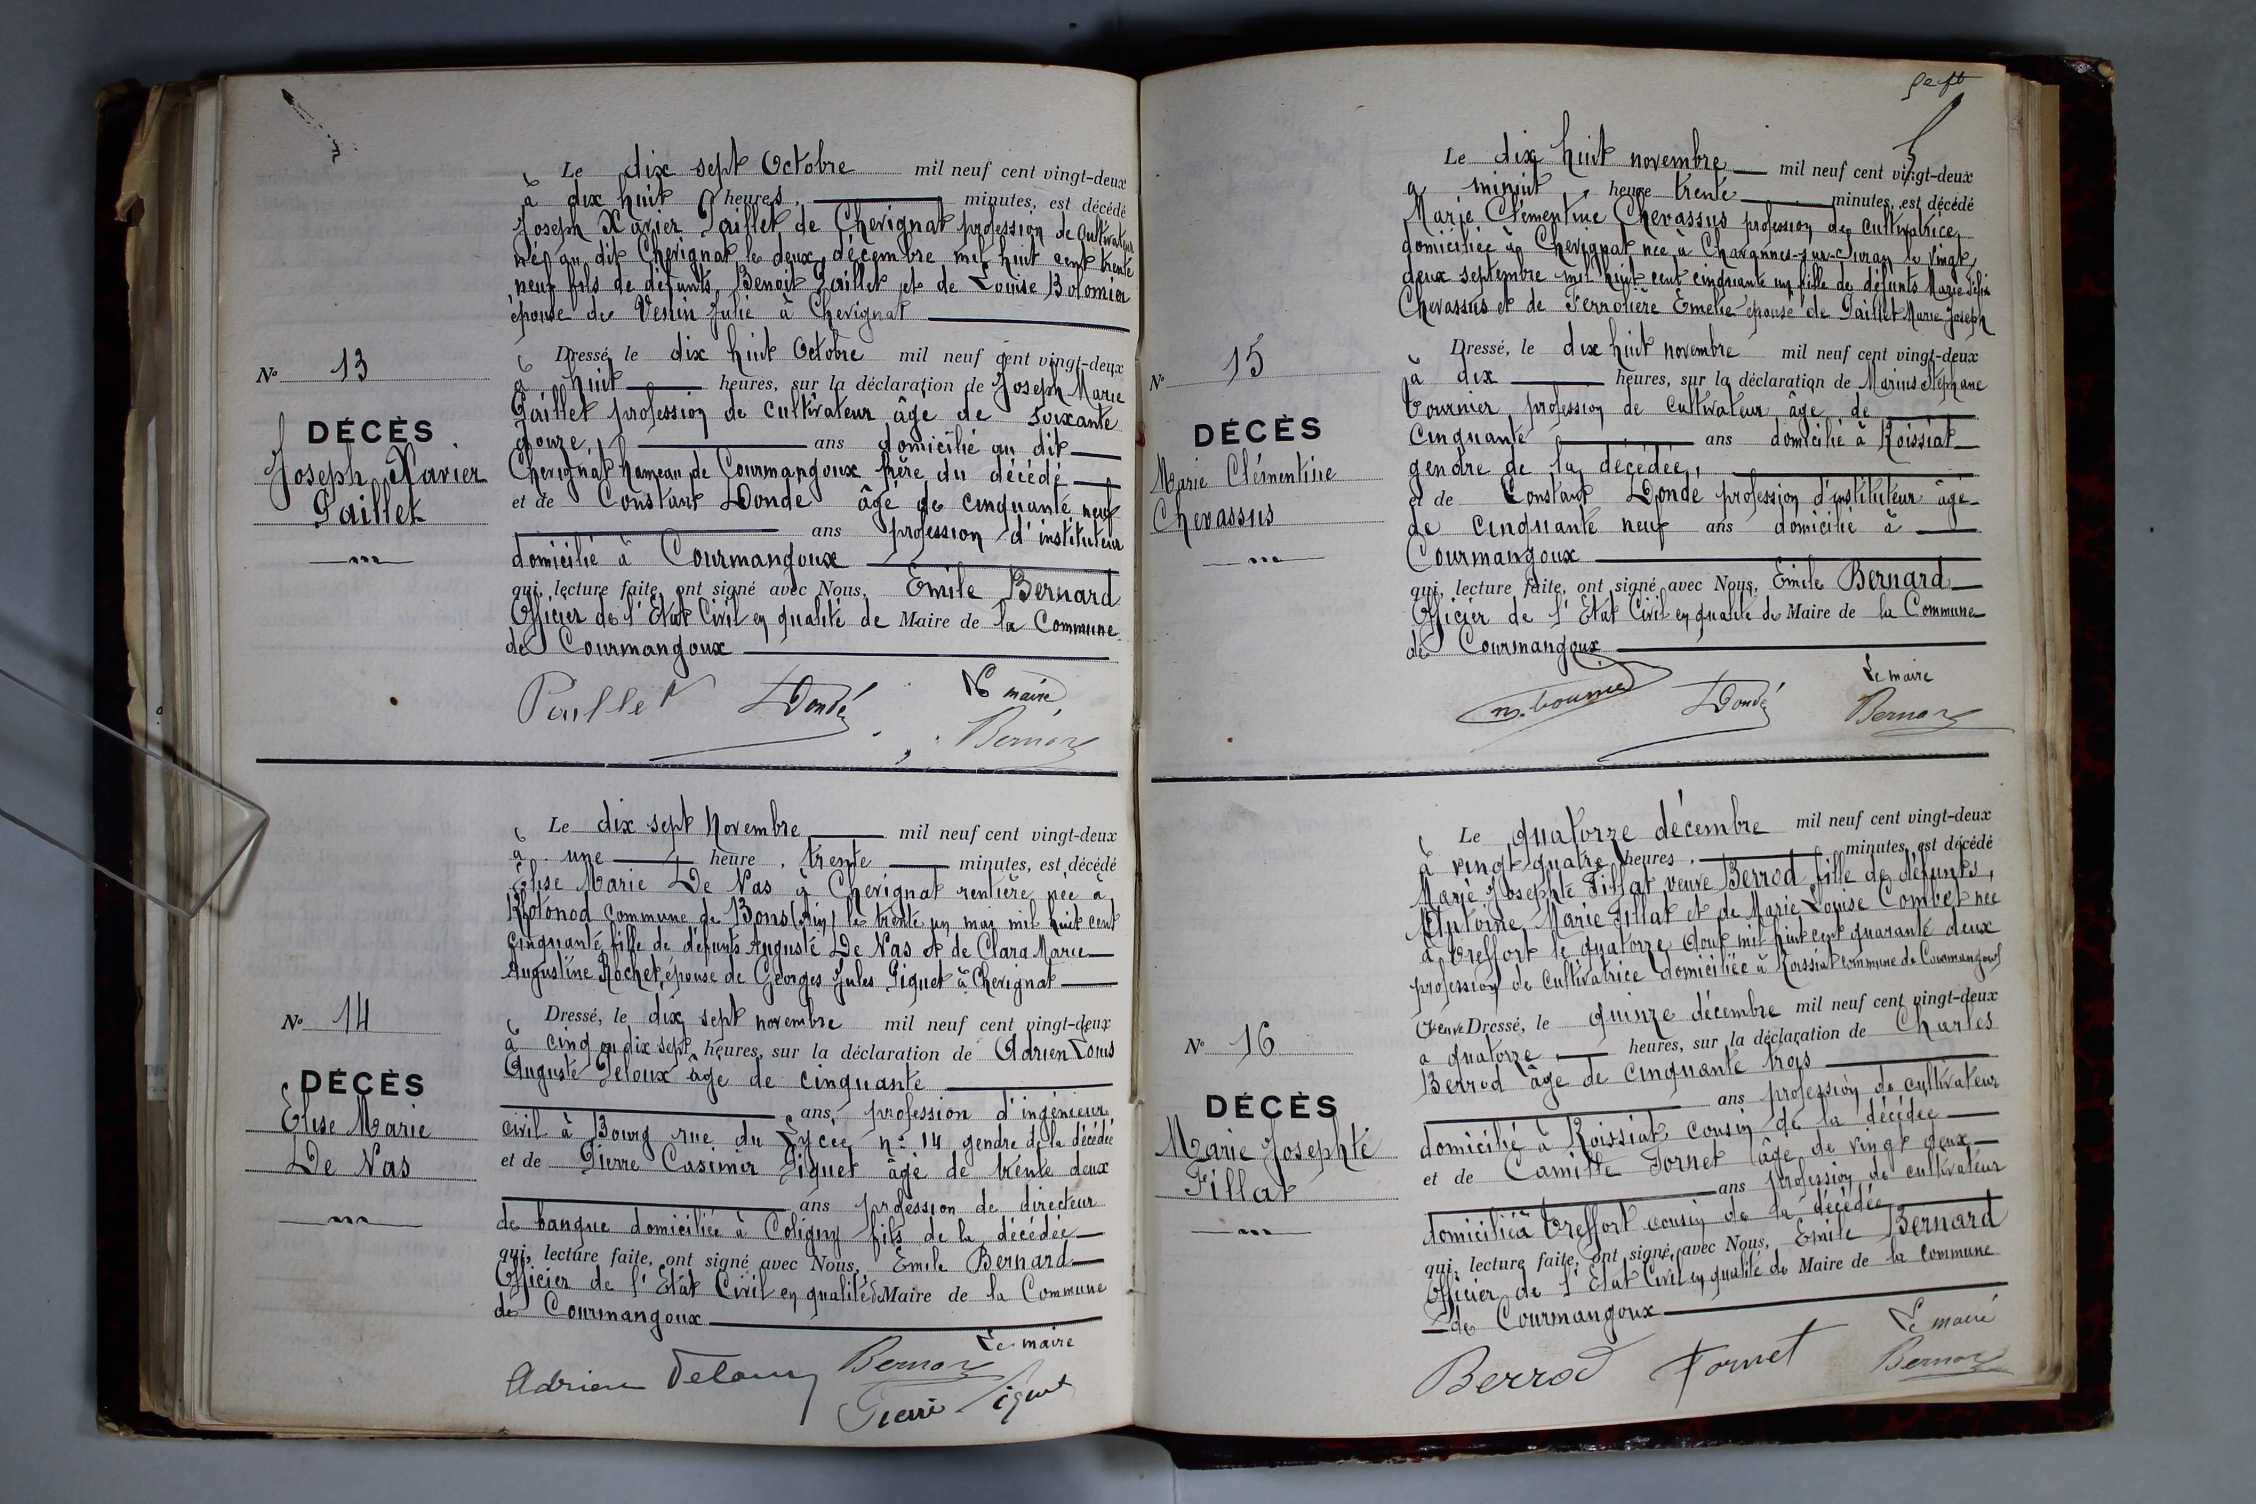 Le dix sept Octobre mil neuf cent vingt-deux
à dix huit heures, minutes, est décédé
Joseph Xavier Paillet de Chevignat profession de Cultivateur
né au dit Chevignat le deux décembre mil huit cent trente
neuf fils de défunts Benoit Paillet et de Louise Bolomier
époux de Venin Julie à Chevignat
N° 13
DÉCÈS
Joseph Xavier
Paillet
Dressé le dix huit Octobre mil neuf cent vingt-deux
à huit heures, sur la déclaration de Joseph Marie
Paillet profession de cultivateur âgé de soixante
douze ans domicilié au dit
Chevignat hameau de Courmangoux frère du décédé
et de Constant Dondé âgé de cinquante neuf
ans profession d'instituteur
domicilié à Courmangoux
qui, lecture faite, ont signé avec Nous, Emile Bernard
Officier de l'Etat Civil en qualité de Maire de la Commune
de Courmangoux
Paillet Dondé Le maire
Bernard
Le dix sept Novembre mil neuf cent vingt-deux
à une heure, trente minutes, est décédé
Elise Marie De Vas à Chevignat rentière née à
commune de Bons (Ain) le trente un mai mil huit cent
cinquante fille de défunts Auguste De Vas et de Clara Marie
Augustine Rochet, épouse de Georges Jules Piquet à Chevignat
N° 14
DÉCÈS
Elise Marie
De Vas
Dressé, le dix sept novembre mil neuf cent vingt-deux
à cinq ou dix sept heures, sur la déclaration de Adrien Louis
Auguste Peloux âgé de cinquante
ans, profession d'ingénieur
civil à Bourg rue du Lycée n° 14 gendre de la décédée
et de Pierre Casimir Piquet âgé de trente deux
ans profession de directeur
de banque domiciliée à Coligny fils de la décédée
qui, lecture faite, ont signé avec Nous, Emile Bernard
Officier de l'Etat Civil en qualité de Maire de la Commune
de Courmangoux
Le maire
Adrien Peloux Bernard
Pierre Piquet
Le dix huit novembre mil neuf cent vingt-deux
à minuit, heure trente minutes, est décédé
Marie Clémentine Chevassus profession de cultivatrice
domiciliée à Chevignat née à Chavannes-sur-Suran le vingt
deux septembre mil huit cent cinquante un fille de défunts Marie Félix
Chevassus et de Ferrolière Emélie épouse de Paillet Marie Joseph
N° 15
DÉCÈS
Marie Clémentine
Chevassus
Dressé, le dix huit novembre mil neuf cent vingt-deux
à dix heures, sur la déclaration de Marius Stéphane
Bournier profession de cultivateur âgé de
cinquante ans domicilié à Roissiat
gendre de la décédée,
et de Constant Dondé profession d'instituteur âgé
de cinquante neuf ans domicilié à
Courmangoux
qui, lecture faite, ont signé avec Nous, Emile Bernard
Officier de l'Etat Civil en qualité de Maire de la Commune
de Courmangoux
Le maire
Dondé Bernard
Le quatorze décembre mil neuf cent vingt-deux
à vingt-quatre heures, minutes, est décédé
Marie Josephte Fillat veuve Berrod fille de défunts,
Antoine Marie Fillat et de Marie Louise Combet née
à Treffort le quatorze Aout mil huit cent quarante deux
profession de cultivatrice domiciliée à Roissiat commune de Courmangoux
N° 16
DÉCÈS
Marie Josephte
Fillat
Veuve Dressé, le quinze décembre mil neuf cent vingt-deux
à quatorze heures, sur la déclaration de Charles
Berrod âgé de cinquante trois
ans profession de cultivateur
domicilié à Roissiat cousin de la décédée
et de Camille Fornet âgé de vingt deux
ans profession de cultivateur
domicilié à Treffort cousin de la décédée
qui, lecture faite, ont signé, avec Nous, Emile Bernard
Officier de l'Etat Civil en qualité de Maire de la commune
de Courmangoux
Le maire
Berrod Fornet Bernard